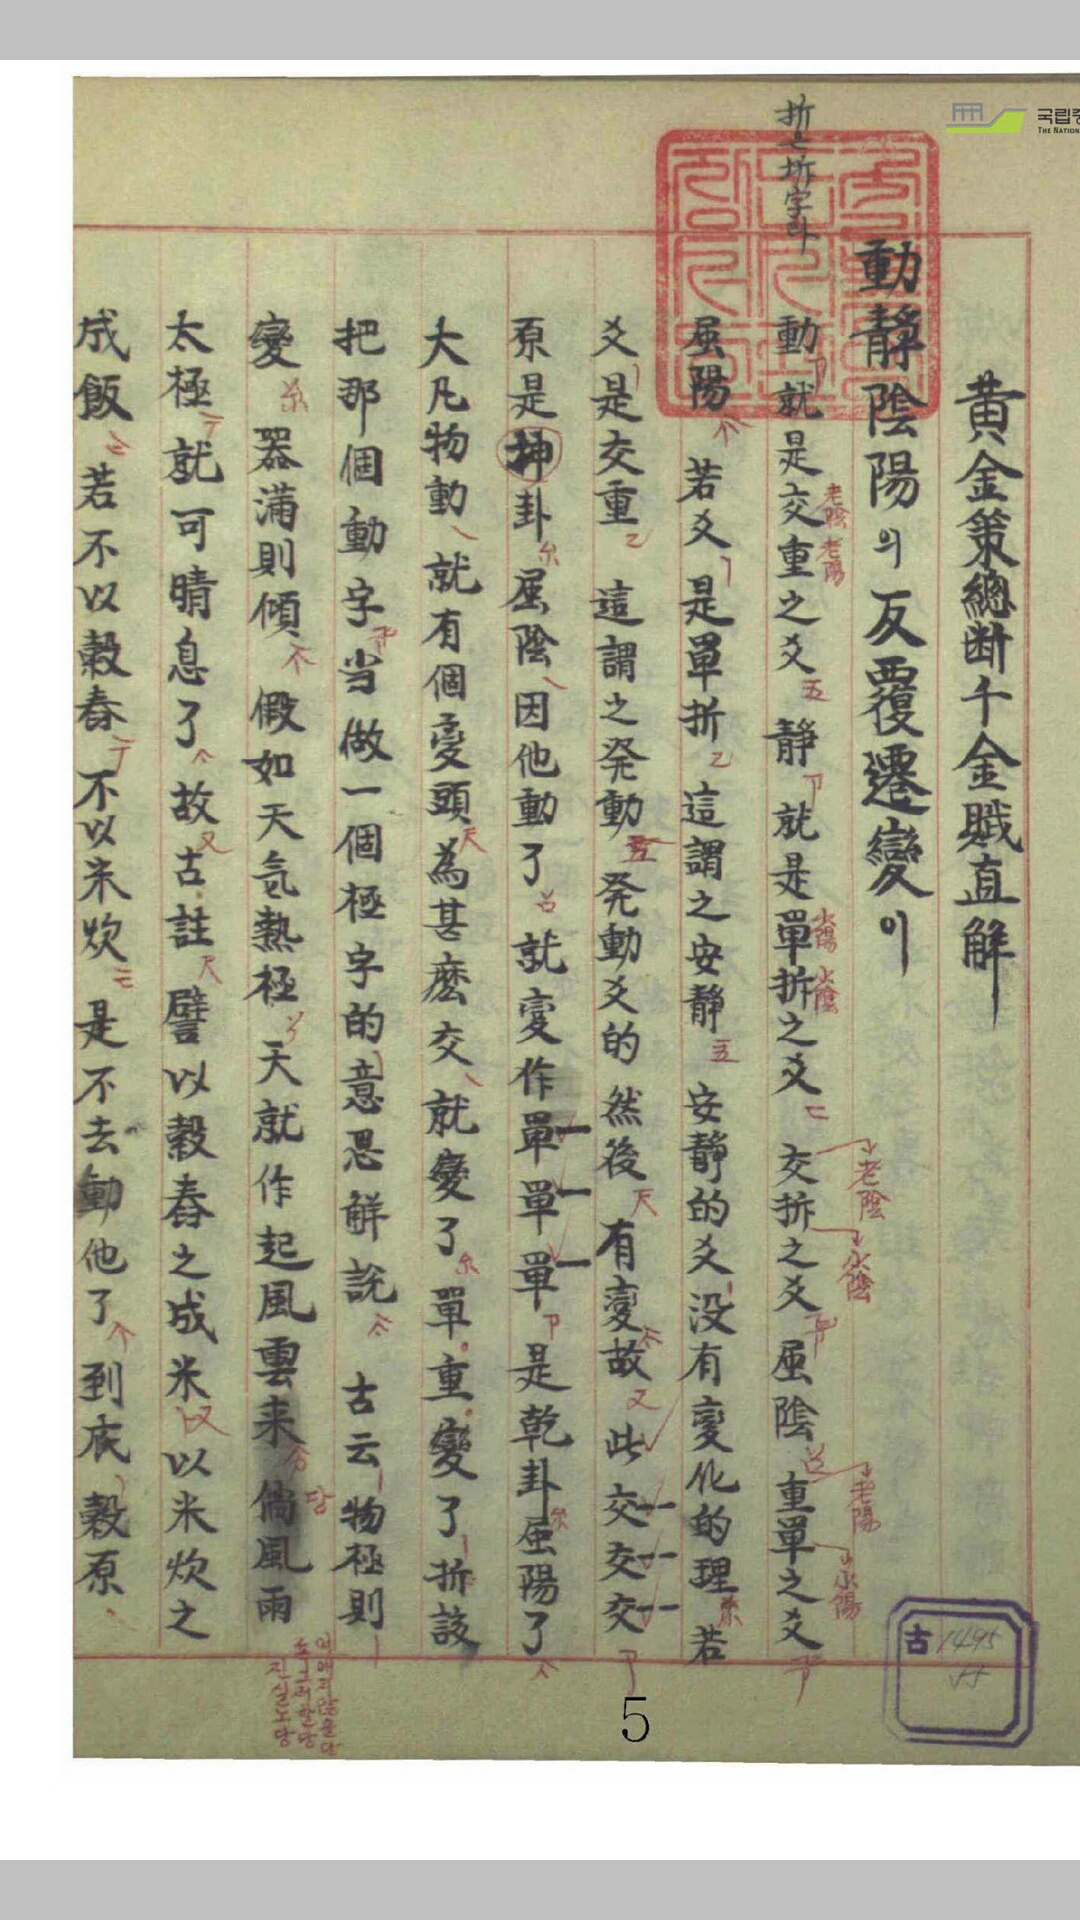 黄金策總断千金賦直解
動靜陰陽의 反覆遷變이
折은 坼字라
動就是交重之爻 靜就是單拆之爻 交拆之爻屈陰 重單之爻
老陰 老陽
少陽 少陰
老陰
少陰
老陽
少陽
屈陽 若爻是單折 這謂之安靜 安靜的爻没有變化的理 若
爻是交重 這謂之発動 発動爻的 然後有變故 此交交交
原是坤卦 屈陰因他動了 就変作單單單 是乾卦屈陽了
大凡物動 就有個変頭 為甚麽交就變了 單重變了 折該
把那個動字当做一個極字的意思解説 古云 物極則
變 器滿則傾 假如天氣熱極 天就作起風雲来 倘風雨
太極 就可晴息了 故古註 譬以穀舂之成米 以米炊之
成飯 若不以穀舂 不以米炊 是不去動他了 到底 穀原
古 1495
5